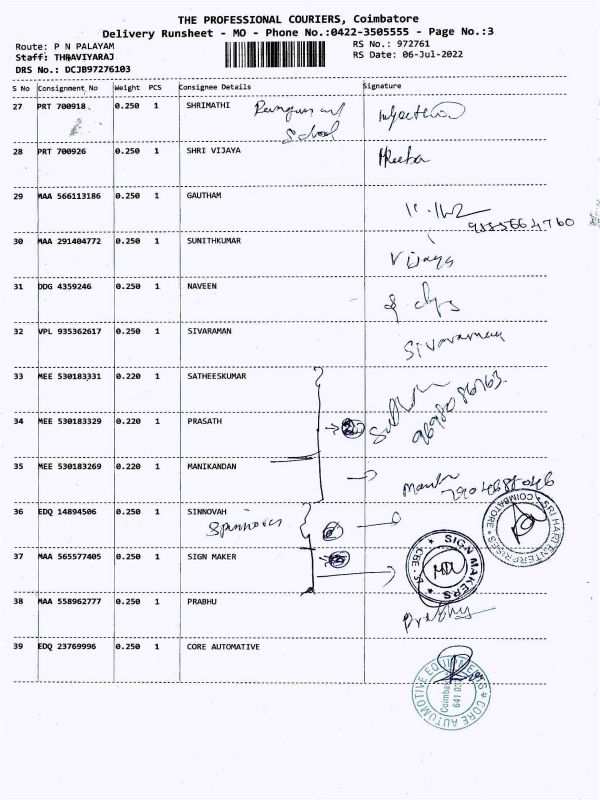 THE PROFESSIONAL COURIERS, Coimbatore
Delivery Runsheet - MO - Phone No.:0422-3505555 - Page No.:3
Route: P N PALAYAM RS No.: 972761
Staff: THRAVIYARAJ RS Date: 06-Jul-2022
DRS No.: DCJB97276103
S No Consignment No Weight PCS Consignee Details Signature
27 PRT 700918 0.250 1 SHRIMATHI
School
28 PRT 700926 0.250 1 SHRI VIJAYA
29 MAA 566113186 0.250 1 GAUTHAM
30 MAA 291404772 0.250 1 SUNITHKUMAR
Vijaya
31 DDG 4359246 0.250 1 NAVEEN
32 VPL 935362617 0.250 1 SIVARAMAN
Sivaraman
33 MEE 530183331 0.220 1 SATHEESKUMAR
34 MEE 530183329 0.220 1 PRASATH
35 MEE 530183269 0.220 1 MANIKANDAN
36 EDQ 14894506 0.250 1 SINNOVAH
COIMBATORE SRI HARI ENTERPRISES
37 MAA 565577405 0.250 1 SIGN MAKER
SIGN MAKERS
38 MAA 558962777 0.250 1 PRABHU
Prabhu
39 EDQ 23769996 0.250 1 CORE AUTOMATIVE
CORE AUTOMOTIVE EQUIPMENTS